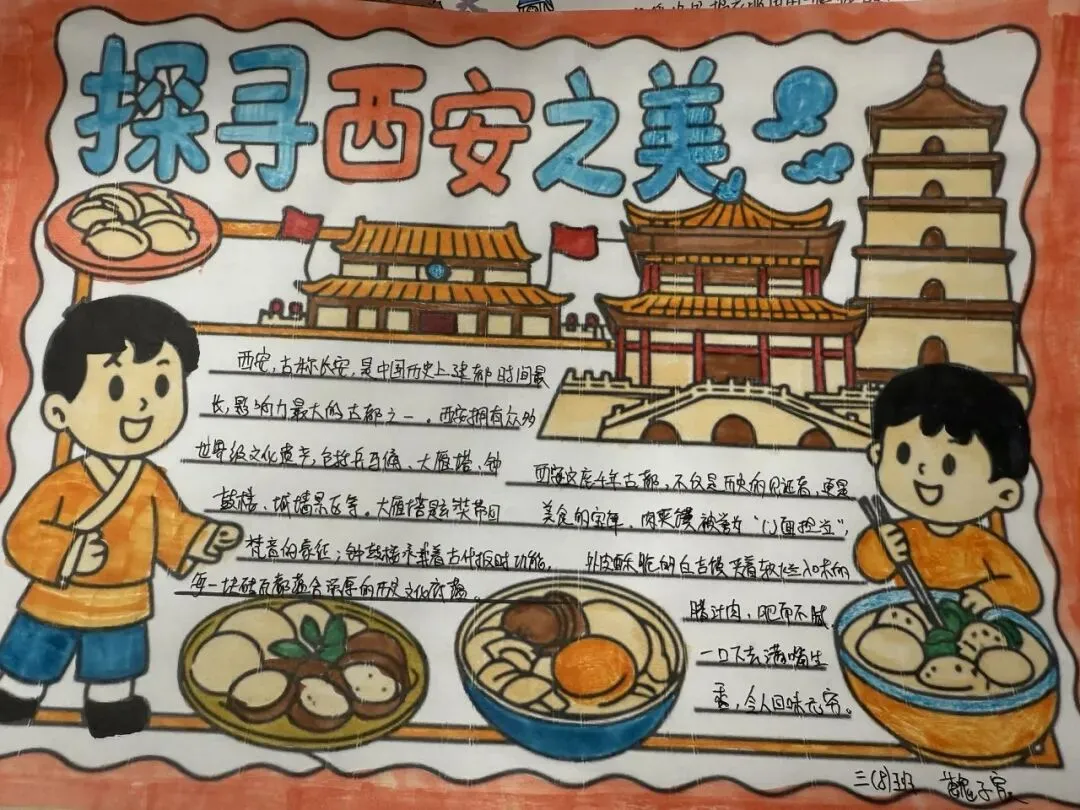 探寻西安之美
西安,古称长安,是中国历史上建都时间最
长,影响力最大的古都之一。西安拥有众多
世界级文化遗产,包括兵马俑、大雁塔、钟
鼓楼、城墙景区等。大雁塔是玄奘
梵音的象征;钟鼓楼承载着古代报时功能,
每一块砖瓦都蕴含深厚的历史文化底蕴。
西安这座千年古都,不仅是历史的见证者,更是
美食的宝库。肉夹馍被誉为"
外皮酥脆的白吉馍夹着软烂入味的
腊汁肉,肥而不腻,
一口下去满嘴生
香,令人回味无穷。
三(8)班 魏子